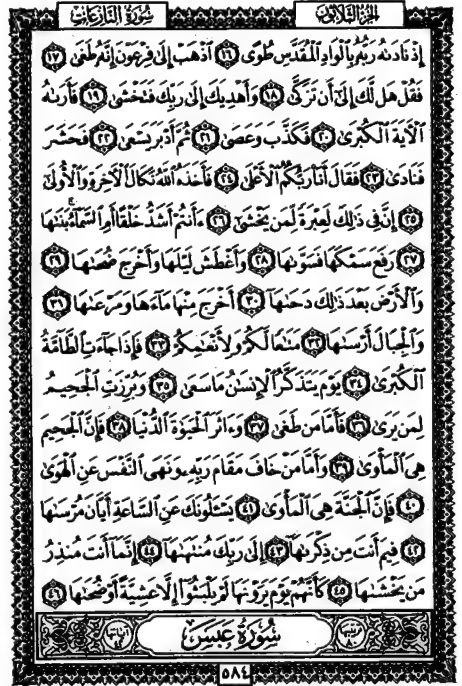 سُورَةُ النَّازِعَاتِ
الجُزءُ الثَّلاثُونَ
إِذْ نَادَىٰهُ رَبُّهُۥ بِٱلْوَادِ ٱلْمُقَدَّسِ طُوًى ١٦ ٱذْهَبْ إِلَىٰ فِرْعَوْنَ إِنَّهُۥ طَغَىٰ ١٧
فَقُلْ هَل لَّكَ إِلَىٰٓ أَن تَزَكَّىٰ ١٨ وَأَهْدِيَكَ إِلَىٰ رَبِّكَ فَتَخْشَىٰ ١٩ فَأَرَىٰهُ
ٱلْـَٔايَةَ ٱلْكُبْرَىٰ ٢٠ فَكَذَّبَ وَعَصَىٰ ٢١ ثُمَّ أَدْبَرَ يَسْعَىٰ ٢٢ فَحَشَرَ
فَنَادَىٰ ٢٣ فَقَالَ أَنَا۠ رَبُّكُمُ ٱلْأَعْلَىٰ ٢٤ فَأَخَذَهُ ٱللَّهُ نَكَالَ ٱلْـَٔاخِرَةِ وَٱلْأُولَىٰٓ
٢٥ إِنَّ فِى ذَٰلِكَ لَعِبْرَةً لِّمَن يَخْشَىٰٓ ٢٦ ءَأَنتُمْ أَشَدُّ خَلْقًا أَمِ ٱلسَّمَآءُ ۚ بَنَىٰهَا
٢٧ رَفَعَ سَمْكَهَا فَسَوَّىٰهَا ٢٨ وَأَغْطَشَ لَيْلَهَا وَأَخْرَجَ ضُحَىٰهَا ٢٩
وَٱلْأَرْضَ بَعْدَ ذَٰلِكَ دَحَىٰهَآ ٣٠ أَخْرَجَ مِنْهَا مَآءَهَا وَمَرْعَىٰهَا ٣١
وَٱلْجِبَالَ أَرْسَىٰهَا ٣٢ مَتَٰعًا لَّكُمْ وَلِأَنْعَٰمِكُمْ ٣٣ فَإِذَا جَآءَتِ ٱلطَّآمَّةُ
ٱلْكُبْرَىٰ ٣٤ يَوْمَ يَتَذَكَّرُ ٱلْإِنسَٰنُ مَا سَعَىٰ ٣٥ وَبُرِّزَتِ ٱلْجَحِيمُ
لِمَن يَرَىٰ ٣٦ فَأَمَّا مَن طَغَىٰ ٣٧ وَءَاثَرَ ٱلْحَيَوٰةَ ٱلدُّنْيَا ٣٨ فَإِنَّ ٱلْجَحِيمَ
هِىَ ٱلْمَأْوَىٰ ٣٩ وَأَمَّا مَنْ خَافَ مَقَامَ رَبِّهِۦ وَنَهَى ٱلنَّفْسَ عَنِ ٱلْهَوَىٰ
٤٠ فَإِنَّ ٱلْجَنَّةَ هِىَ ٱلْمَأْوَىٰ ٤١ يَسْـَٔلُونَكَ عَنِ ٱلسَّاعَةِ أَيَّانَ مُرْسَىٰهَا
٤٢ فِيمَ أَنتَ مِن ذِكْرَىٰهَآ ٤٣ إِلَىٰ رَبِّكَ مُنتَهَىٰهَآ ٤٤ إِنَّمَآ أَنتَ مُنذِرُ
مَن يَخْشَىٰهَا ٤٥ كَأَنَّهُمْ يَوْمَ يَرَوْنَهَا لَمْ يَلْبَثُوٓا۟ إِلَّا عَشِيَّةً أَوْ ضُحَىٰهَا ٤٦
سُورَةُ عَبَسَ
٥٨٤